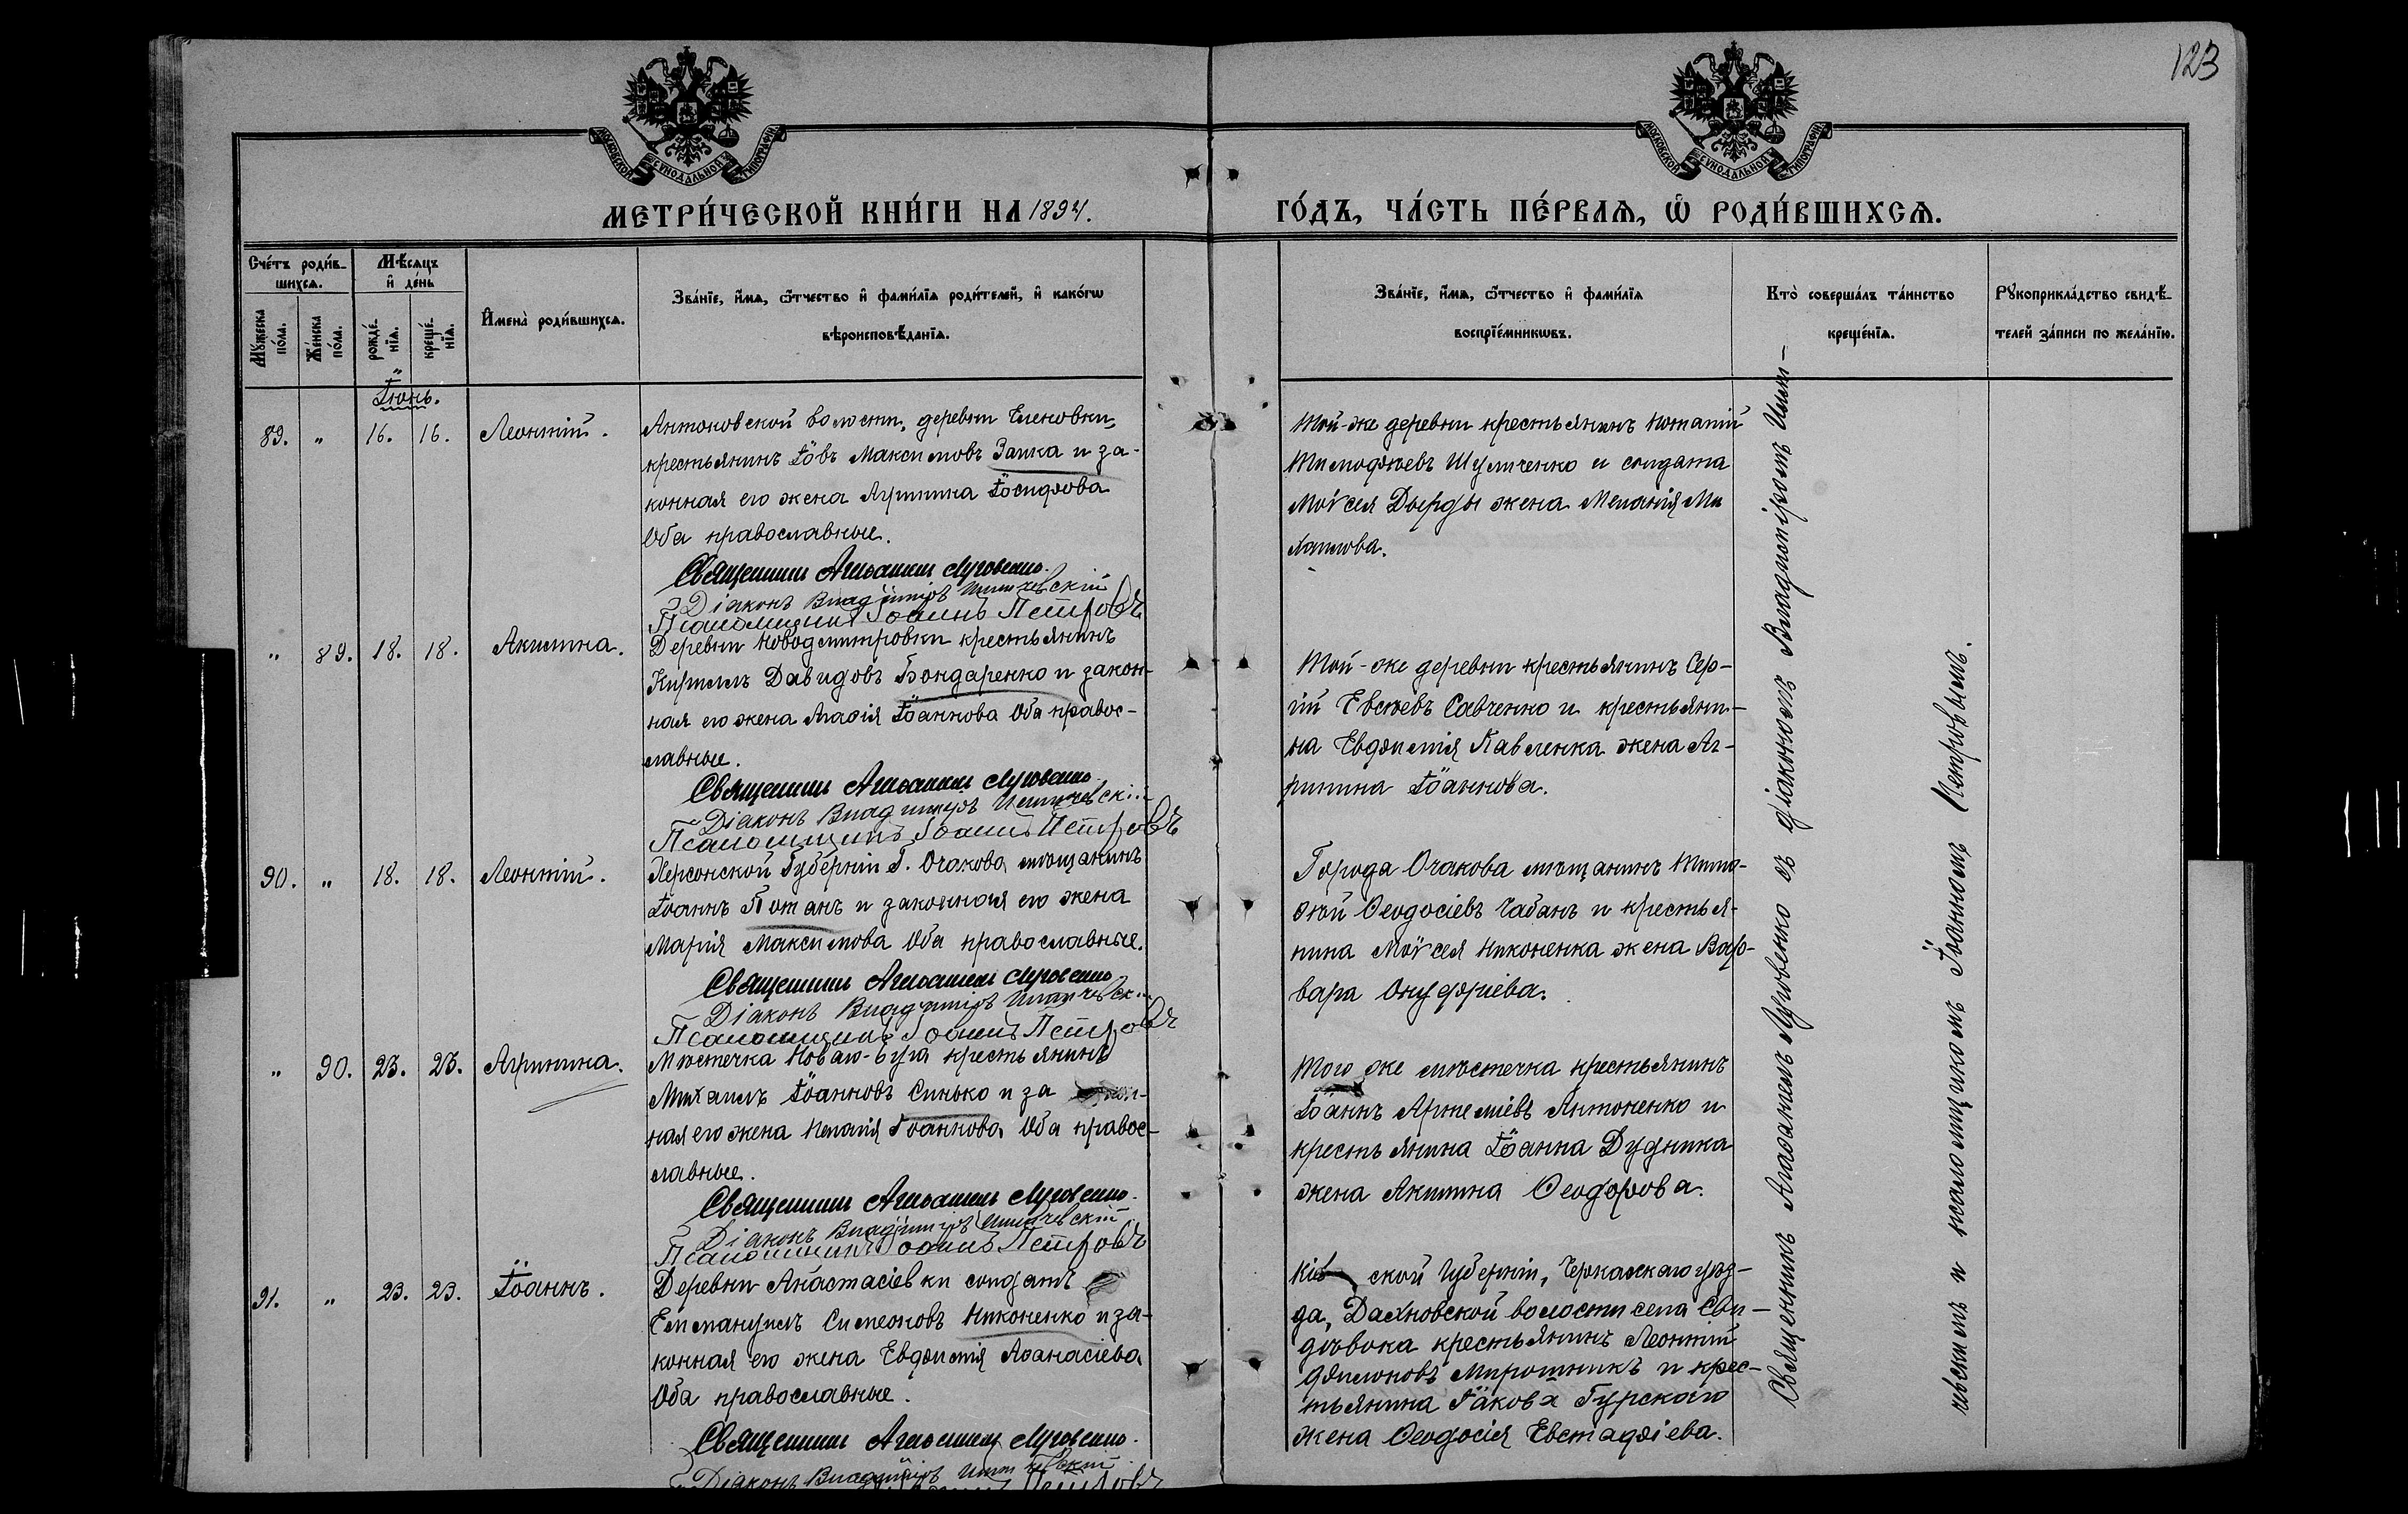 123
МОСКОВСКОЙ СѴНОДАЛЬНОЙ ТИПОГРАФІИ
МОСКОВСКОЙ СѴНОДАЛЬНОЙ ТИПОГРАФІИ
МЕТРИ́ЧЕСКОЙ КНИ́ГИ НА 1894.
ГО́ДЪ, ЧА́СТЬ ПЕ́РВАѦ, Ѡ РОДИ́ВШИХСѦ.
Сче́тъ роди́в-
шихсѧ.
Мꙋ́жеска по́ла.
Же́нска по́ла.
Мѣ́сѧцъ
и҆ де́нь
рожде́-
нїѧ.
креще́-
нїѧ.
И҆мена̀ роди́вшихсѧ.
Зва́нїе, и҆́мѧ, ѻ҆́тчество и҆ фами́лїѧ роди́телей, и҆ како́гѡ
вѣроисповѣ́данїѧ.
Зва́нїе, и҆́мѧ, ѻ҆́тчество и҆ фами́лїѧ
воспрїе́мникѡвъ.
Кто̀ соверша́лъ та́инство
креще́нїѧ.
Рꙋкоприкла́дство свидѣ́-
телей за́писи по жела́нїю.
Іюнь.
89. " 16. 16. Леонтій.
Антоновской волости, деревни Еленовки,
крестьянинъ Іовъ Максимовъ Заика и за-
конная его жена Агрипина Іосифова
Оба православные.
Священникъ Аѳанасій Луговенко.
Діаконъ Владиміръ
Псаломщикъ Іоаннъ Петровъ
Той-же деревни крестьянинъ Потапій
Тимофѣевъ Шульченко и солдата
Моѵсея Дырды жена Меланія Ми
хаилова.
" 89. 18. 18. Акилина.
Деревни Новодмитровки крестьянинъ
Кириллъ Давидовъ Бондаренко и закон-
ная его жена Агафія Іоаннова Оба правос-
лавные.
Священникъ Аѳанасій Луговенко.
Діаконъ Владиміръ
Псаломщикъ Іоаннъ Петровъ
Той-же деревни крестьянинъ Сер-
гій Евсѣевъ Савченко и крестьяни-
на Евфимія Павленка жена Аг-
рипина Іоаннова.
90. " 18. 18. Леонтій.
Херсонской Губерніи Г. Очакова мѣщанинъ
Іоаннъ Потанъ и законная его жена
Марія Максимова Оба православные.
Священникъ Аѳанасій Луговенко
Діаконъ Владиміръ
Псаломщикъ Іоаннъ Петровъ
Города Очакова мѣщанинъ Тимо-
ѳей Ѳеодосіевъ Чабанъ и крестья-
нина Моѵсея Никоненка жена Вар-
вара Онуфріева.
" 90. 23. 23. Агрипина.
Мѣстечка Новаго-Буга крестьянинъ
Михаилъ Іоанновъ Синько и за кон-
ная его жена Меланія Іоаннова Оба правос-
лавные.
Священникъ Аѳанасій Луговенко.
Діаконъ Владиміръ
Псаломщикъ Іоаннъ Петровъ
Того же мѣстечка крестьянинъ
Іоаннъ Артеміевъ Антоненко и
крестьянина Іоанна Дудника
жена Акилина Ѳеодорова.
91. " 23. 23. Іоаннъ.
Деревни Анастасіевки солдатъ
Еммануилъ Симеоновъ Никоненко и за-
конная его жена Евфимія Аѳанасіева
Оба православные.
Священникъ Аѳанасій Луговенко.
Діаконъ Владиміръ
Петровъ
Кіев ской Губерніи, Черкаскаго уѣз-
да, Дахновской волости села Сви-
довока крестьянинъ Леонтій
Филимоновъ Мирошникъ и крес-
тьянина Іакова Гурскаго
жена Ѳеодосія Евстафіева.
Священникъ Аѳанасій Луговенко съ діакономъ Владиміромъ
и псаломщикомъ Іоанномъ Петровымъ.